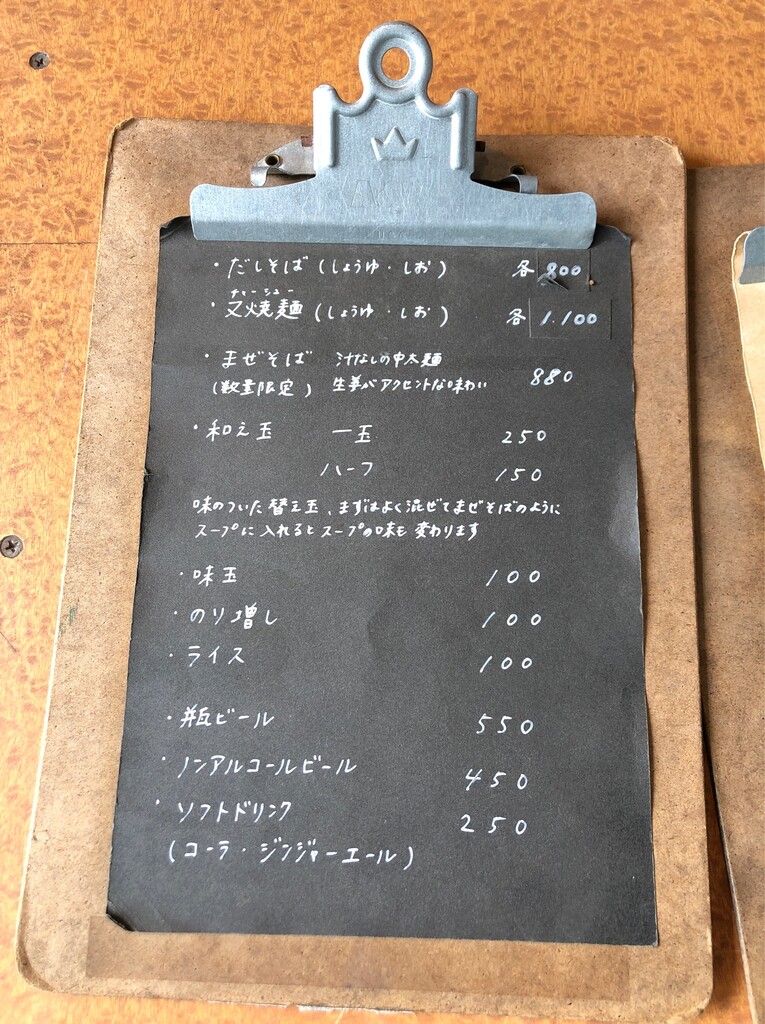 ・だしそば (しょうゆ・しお) 各 800
チャーシュー
・叉焼麺 (しょうゆ・しお) 各 1.100
・まぜそば 汁なしの中太麺
(数量限定) 生姜がアクセントな味わい 880
・和え玉 一玉 250
ハーフ 150
味のついた替え玉、まずはよく混ぜてまぜそばのように
スープに入れるとスープの味も変わります
・味玉 100
・のり増し 100
・ライス 100
・瓶ビール 550
・ノンアルコールビール 450
・ソフトドリンク 250
(コーラ・ジンジャーエール)